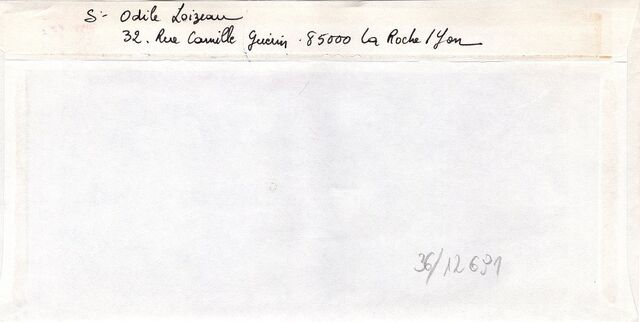 Sr- Odile Loizeau
32. Rue Camille Guérin . 85000 La Roche / Yon
36/12691